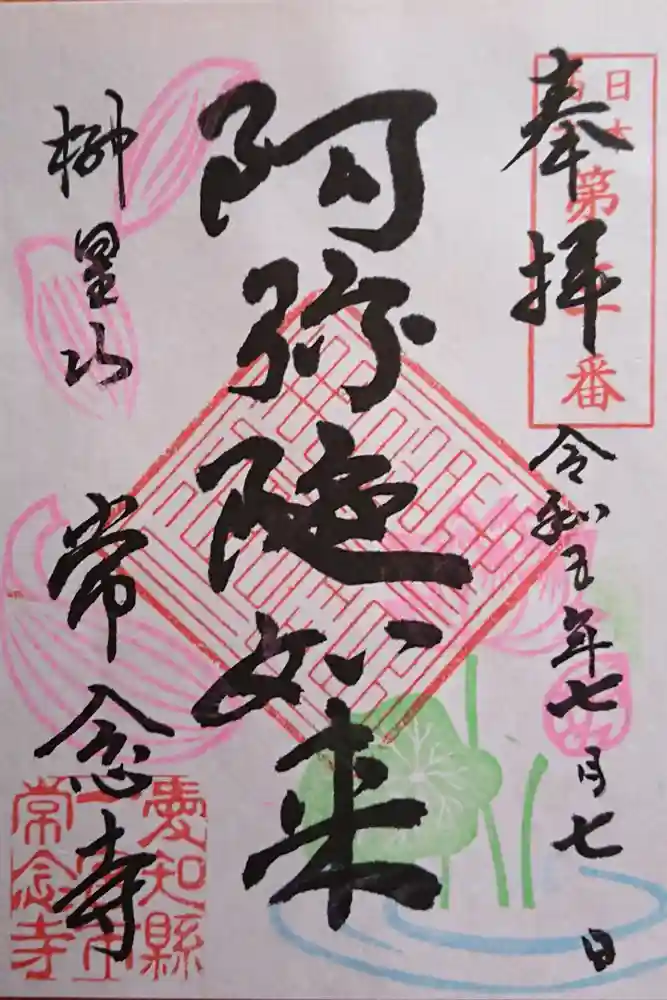 奉拝
令和五年七月七日
阿弥陀如来
柳星山
常念寺
日本
第
番
愛知縣
一宮市
常念寺